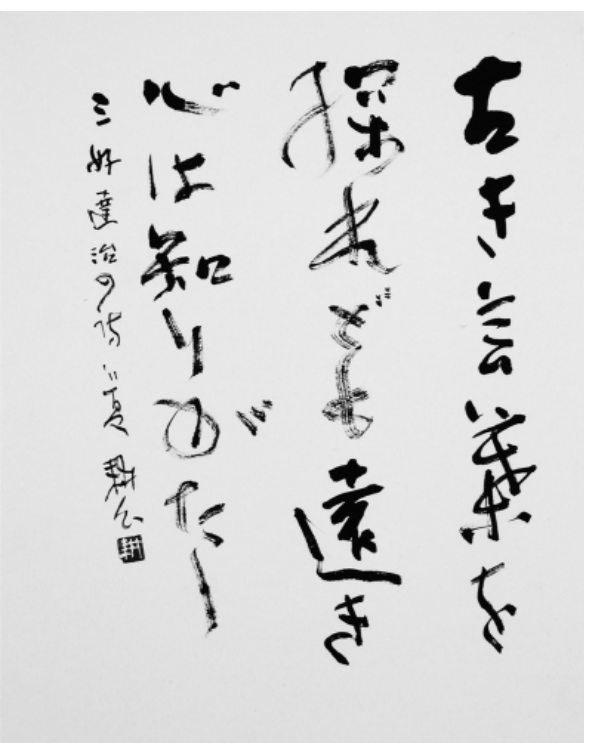 古き言葉を
探れども遠き
心は知りがたし
三好達治の詩